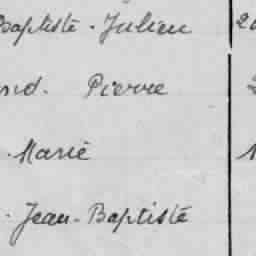 Baptiste - Julien 20
nd. Pierre 2
. Marie 1
. Jean - Baptiste